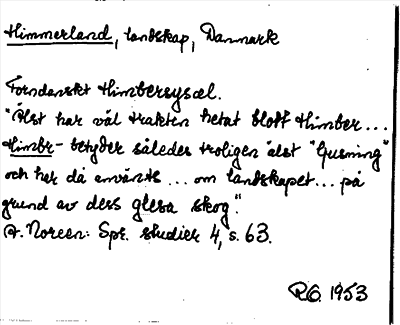 Himmerland, landskap, Danmark
Forndanskt Himbersysæl.
"Älst har väl trakten hetat blott Himber...
Himbr- betyder således troligen älst "ljusning"
och har då använts... om landskapet... på
grund av dess glesa skog."
A. Noreen: Spr. studier 4, s. 63.
R.O. 1953